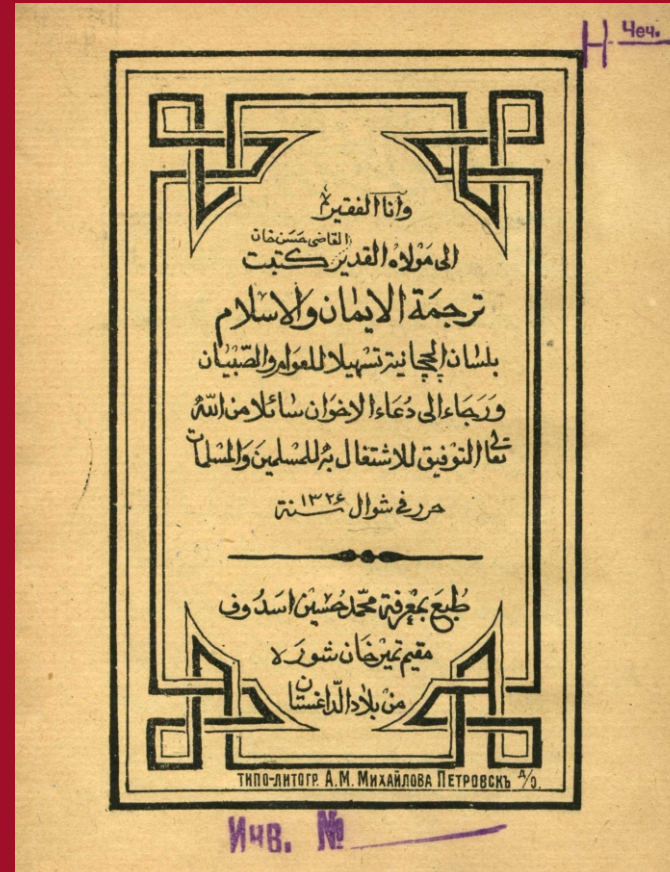 Н Чеч.
وانا الفقير
القاضى حسن خان
الى مولاه القدير كتبت
ترجمة الايمان والاسلام
بلسان الچچانية تسهيلا للعوام والصبيان
ورجاء الى دعاء الاخوان سائلا من الله
تعالى التوفيق للاشتغال به للمسلمين والمسلمات
حرر فى شوال سنة ١٣٢۶
طبع بمعرفة محمد حسين اسدوف
مقيم تمير خان شوره
من بلاد الداغستان
ТИПО-ЛИТОГР. А.М. МИХАЙЛОВА ПЕТРОВСКЪ Д/О.
Инв. №